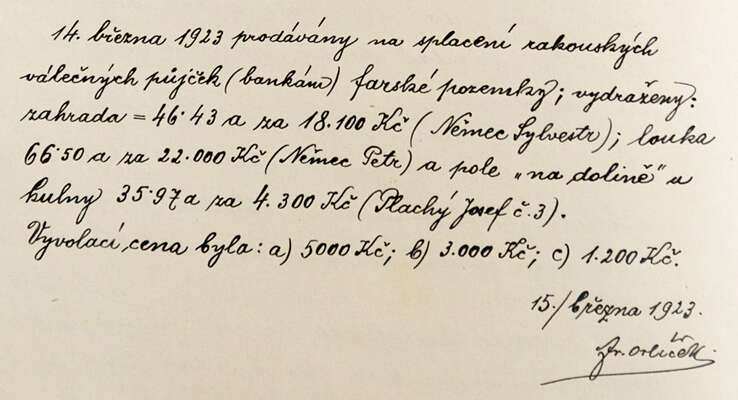 14. března 1923 prodávány na splacení rakouských
válečných půjček (bankám) farské pozemky; vydraženy:
zahrada = 46·43 a za 18.100 Kč (Němec Sylvestr); louka
66·50 a za 22.000 Kč (Němec Petr) a pole „na dolině" u
kulny 35·97 a za 4.300 Kč (Plachý Josef č. 3).
Vyvolací cena byla: a) 5000 Kč; b) 3.000 Kč; c) 1.200 Kč.
15./března 1923.
Fr. Orlíček